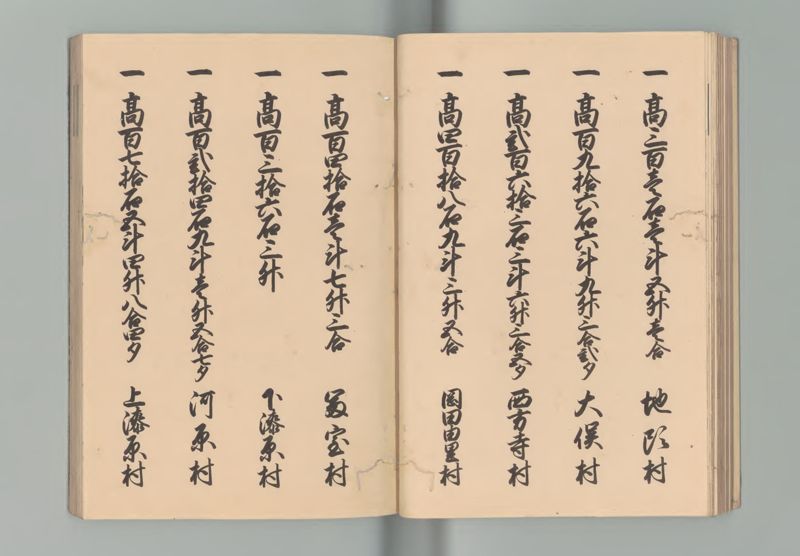 一 高三百壱石壱斗五升壱合 地頭村
一 高百九拾六石六斗九升三合弐夕 大俣村
一 高弐百六拾三石三斗六升三合五夕 西方寺村
一 高四百拾八石九斗三升五合 岡田由里村
一 高百四拾石壱斗七升三合 富室村
一 高百三拾六石三升 下漆原村
一 高百弐拾四石九斗壱升五合七夕 河原村
一 高百七拾石五斗四升八合四夕 上漆原村